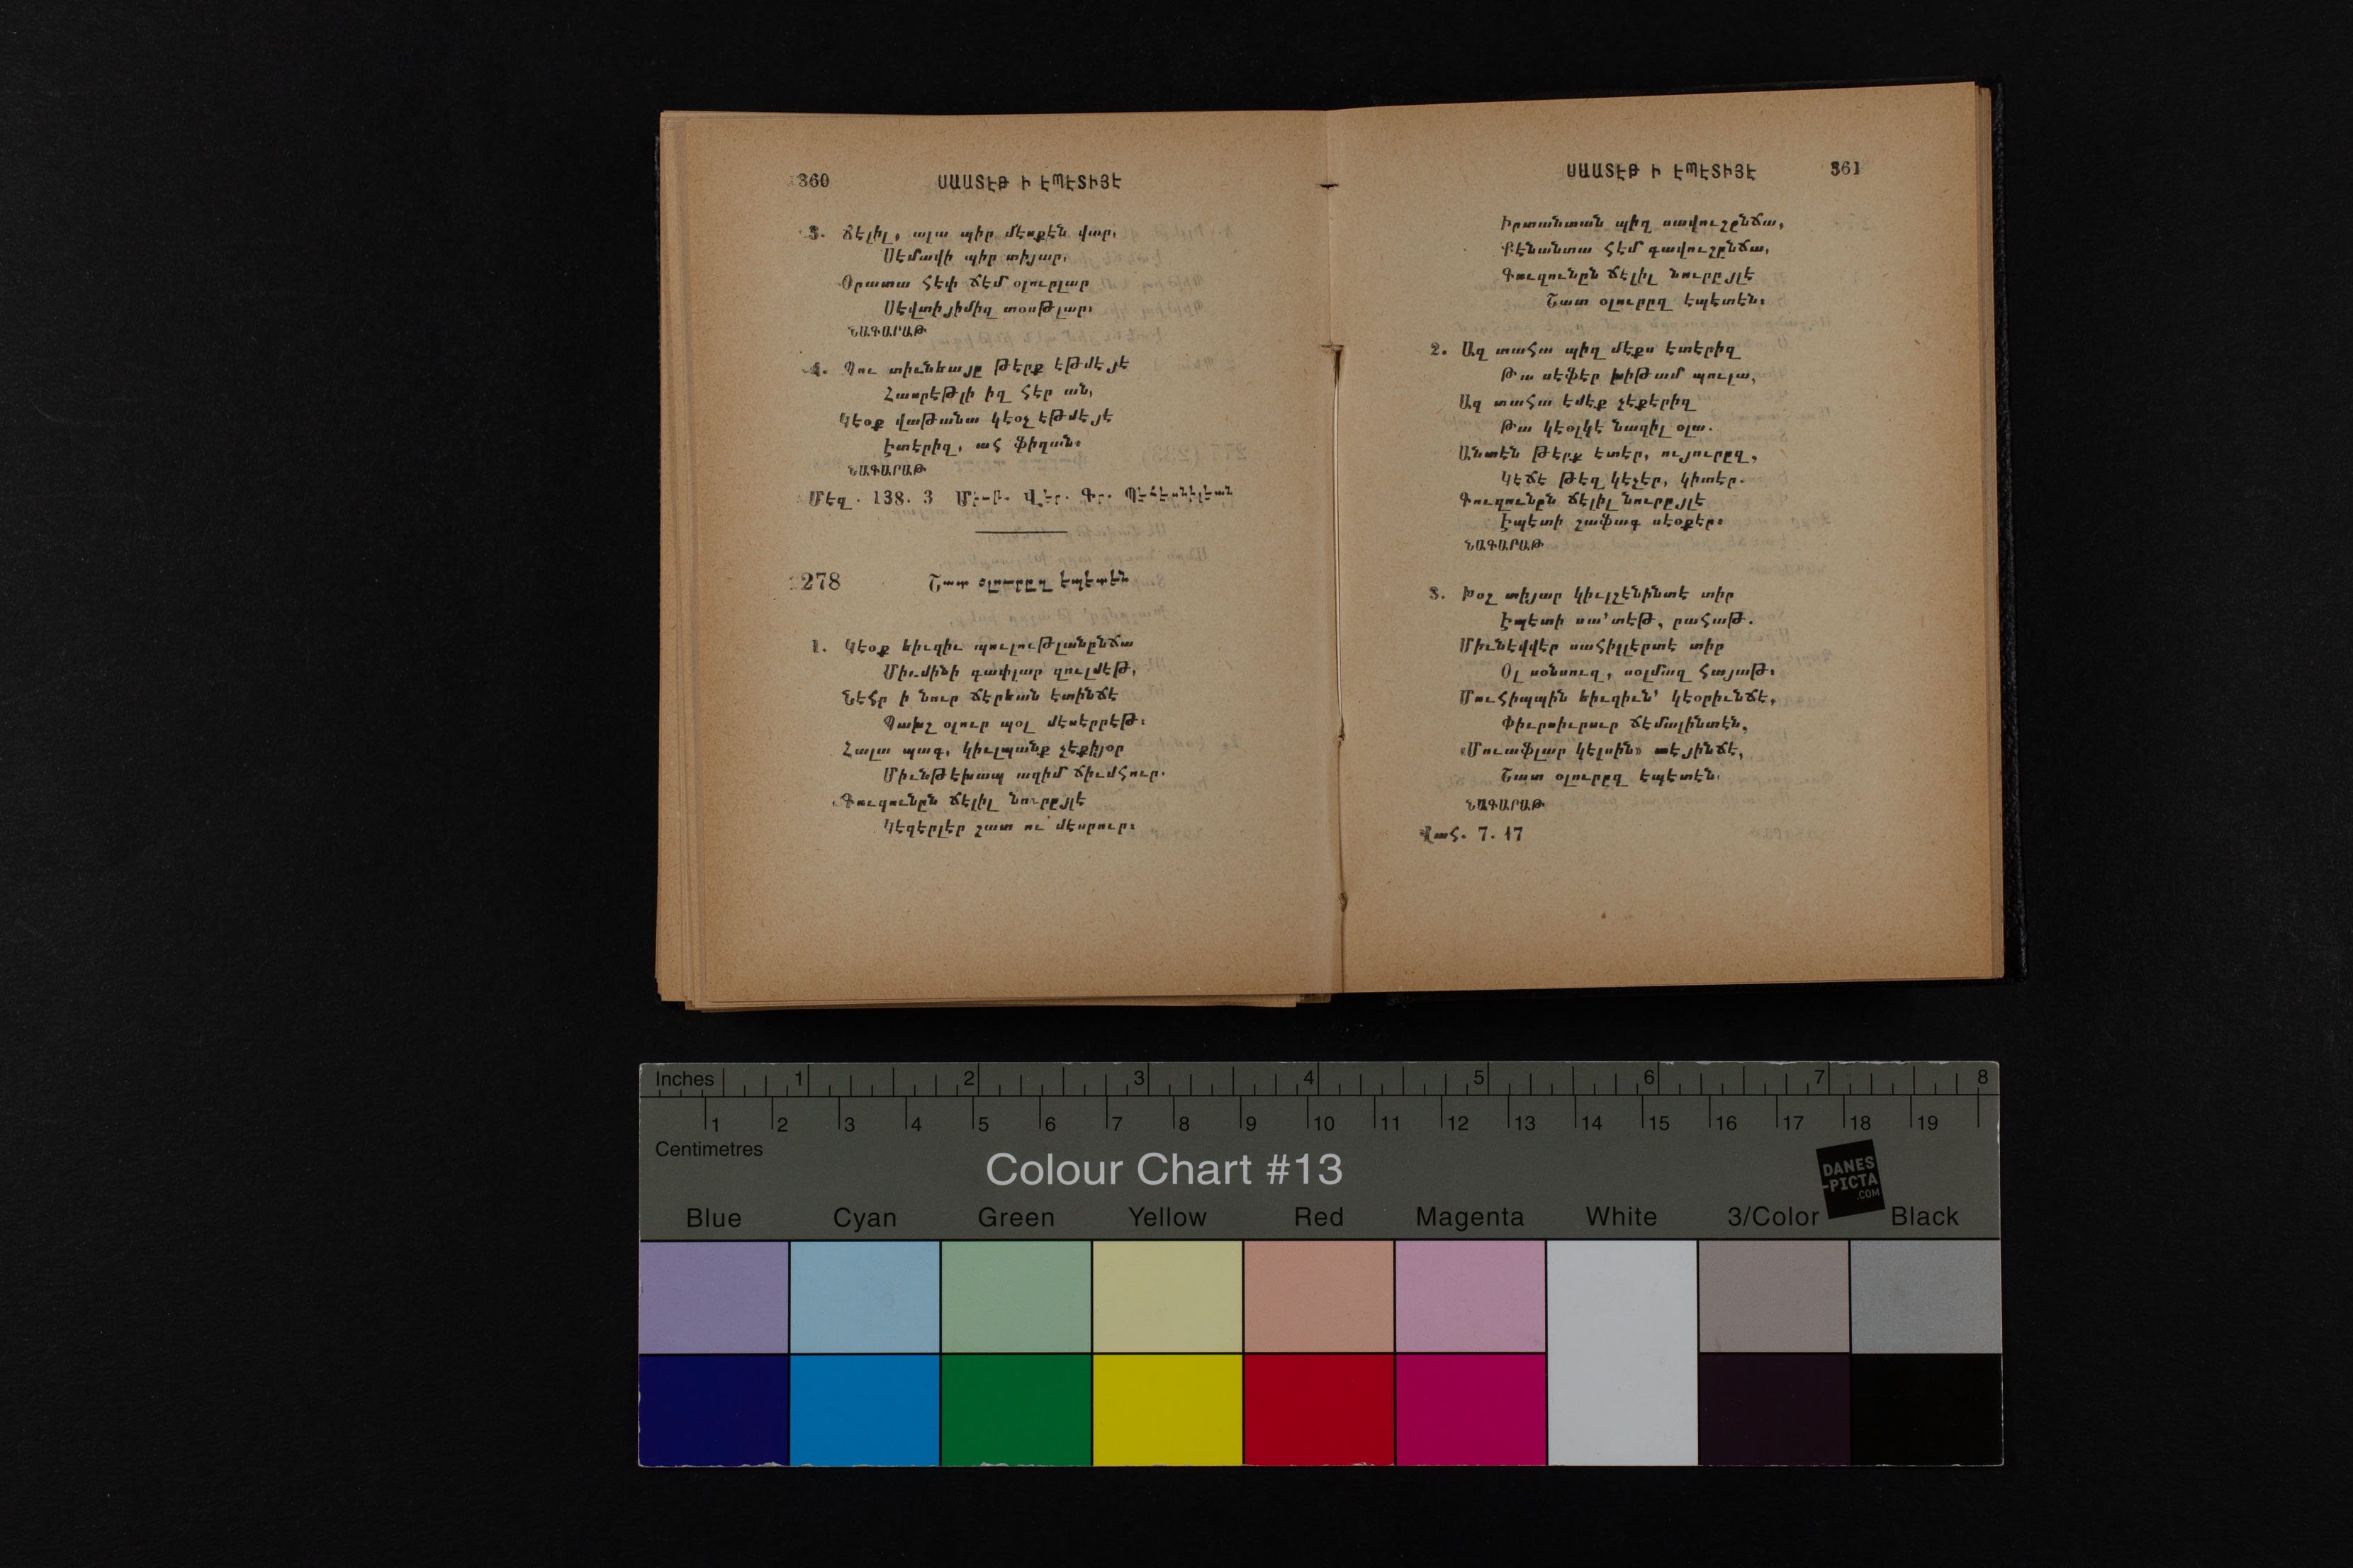 360
ՍԱԱՏԷԹ Ի ԷՊԷՏԻՅԷ
3. Ճէլիլ, ալա պիր մէսքէն վար,
Սէմավի պիր տիյար,
Օրատա հէփ ճէմ օլուրլար
Սէվտիյիմիզ տօսթլար։
ՆԱԳԱՐԱԹ
4. Պու տիւնեայը թէրք էթմէյէ
Հասրէթլի իզ հէր ան,
Կէօք վաթանա կէօչ էթմէյէ
Էտէրիզ, ահ ֆիղան։
ՆԱԳԱՐԱԹ
Մէզ. 138. 3
278
Շատ օլուրըզ էպէտէն
1. Կէօք եիւզիւ պուլութլանընճա
Միւմինի գափլար զուլմէթ,
Նէհր ի նուր ճէրեան էտինճէ
Պախշ օլուր պօլ մէսէրրէթ։
Հալա պագ, կիւլպանք չէքիյօր
Միւնթէխապ ազիմ ճիւմհուր.
Գուզունըն ճէլիլ նուրըյլէ
Կէզէրլէր շատ ու մէսրուր։
ՍԱԱՏԷԹ Ի ԷՊԷՏԻՅԷ
361
Իրտանտան պիզ սավուշընճա,
Քէնանտա հէմ գավուշընճա,
Գուզունըն ճէլիլ նուրըյլէ
Շատ օլուրըզ էպէտէն։
2. Ազ տահա պիզ մէքս էտէրիզ
Թա սէֆէր խիթամ պուլա,
Ազ տահա էմէք չէքէրիզ
Թա կէօլկէ նազիլ օլա.
Անտէն թէրք էտէր, ույուրըզ,
Կէճէ թէզ կէչէր, կիտէր.
Գուզունըն ճէլիլ նուրըյլէ
Էպէտի շաֆագ սէօքէր։
ՆԱԳԱՐԱԹ
3. Խօշ տիյար կիւլշէնինտէ տիր
Էպէտի սա՚տէթ, րահաթ.
Միւնէվվէր սահիլլէրտէ տիր
Օլ սօնսուզ, սօլմազ հայաթ։
Մուհիպպին եիւզիւն՚ կէօրիւնճէ,
Փիւրսիւրուր ճէմալինտէն,
«Մուաֆլար կէլսին» տէյինճէ,
Շատ օլուրըզ էպէտէն.
ՆԱԳԱՐԱԹ
Վահ. 7. 17
Inches 1 2 3 4 5 6 7 8
1 2 3 4 5 6 7 8 9 10 11 12 13 14 15 16 17 18 19
Centimetres
Colour Chart #13
DANES
-PICTA
.COM
Blue Cyan Green Yellow Red Magenta White 3/Color Black